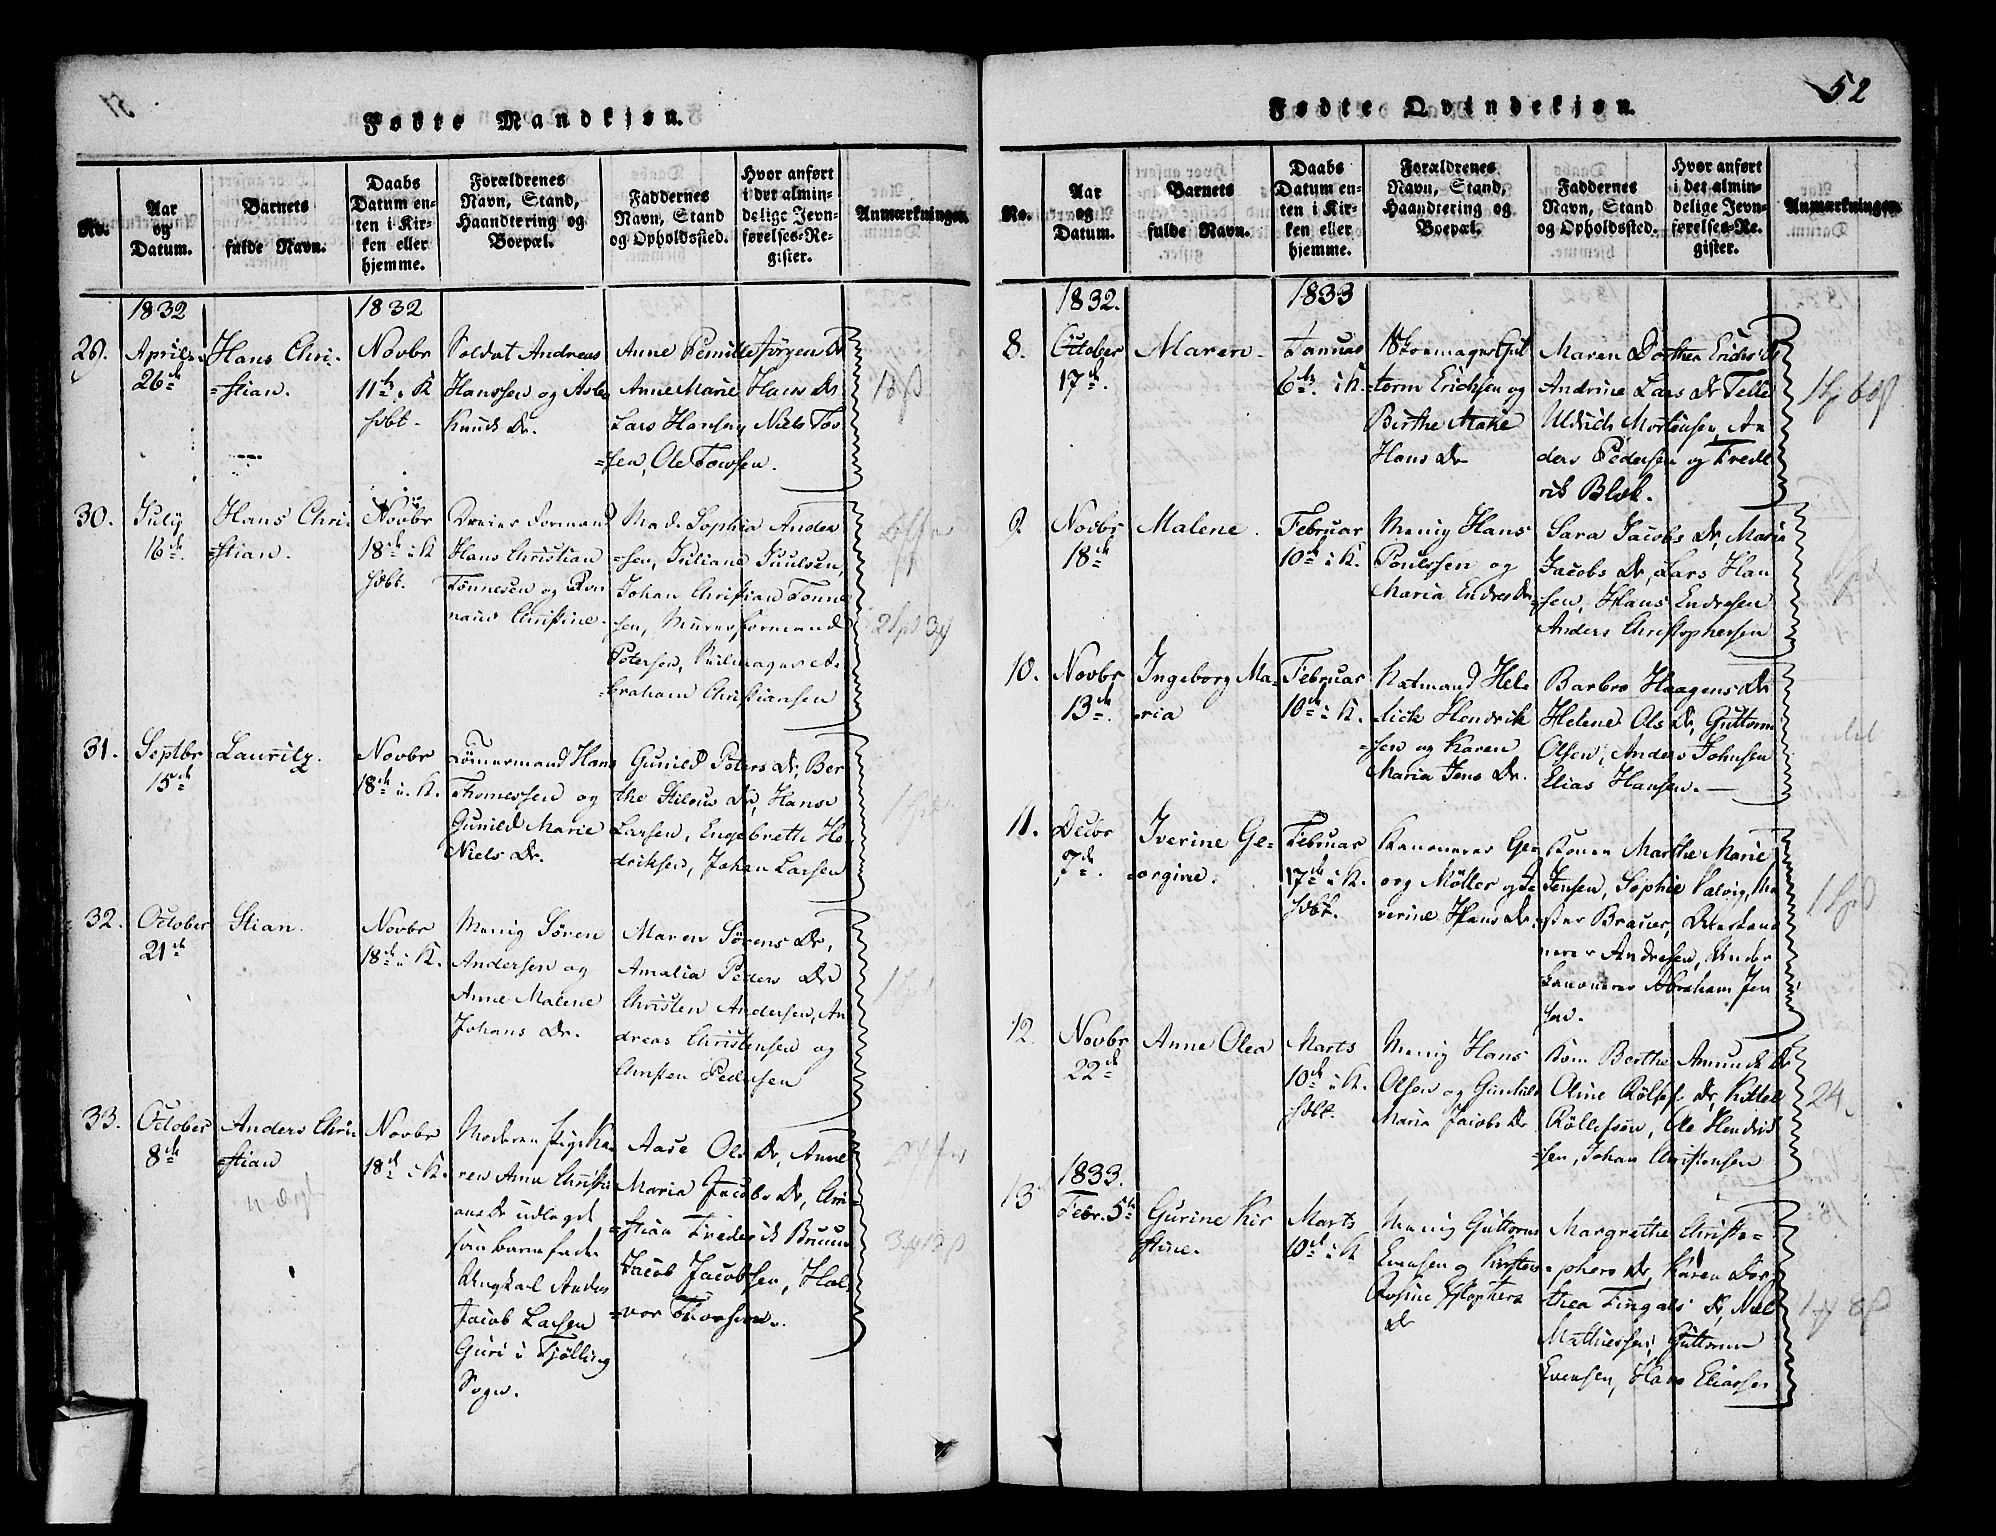 52
Fødte Mandkjøn.
No.
Aar
og
Datum.
Barnets
fulde Navn.
Daabs
Datum en-
ten i Kir-
ken eller
hjemme.
Forældrenes
Navn, Stand,
Haandtering og
Boepæl.
Faddernes
Navn, Stand
og Opholdssted.
Hvor anført
i det almin-
delige Jevn-
førelses-Re-
gister.
Anmærkninger.
1832
1832
29.
April
26de
Hans Chri-
=stian.
Novbr
11te i K
hdbt.
Soldat Andreas
Hanssen og Asle
Knuds Dr.
Anne Pernille Jørgens Dr
Anne Marie Hans Dr
Lars Hansen, Niels Tov
=sen, Ole Towsen.
30.
July
16de
Hans Chri-
=stian.
Novbr
18de i K
hdbt.
Dreier formand
Hans Christian
Tønnesen og
Christine.
Mad. Sophia Ander
=sen, Juliane Juulsen,
Johan Christian Tønne
sen, Murersformand
Petersen, Ruilmager A-
=braham Christiansen
2 Spd 3
31.
Septbr
15de
Lauritz.
Novbr
18de i K.
Tømmermand Hans
Thomessen og
Gunild Marie
Niels Dr.
Gunild Peters Dr, Ber
the Dr, Hans
Larsen, Engebreth He
driksen, Johan Larsen
32.
October
21de
Stian.
Novbr
18de i K.
Menig Søren
Andersen og
Anne Malene
Johans Dr.
Maren Sørens Dr,
Amalia Peders Dr
Christen Andersen, An
dreas Christensen og
Christen Pedersen
33.
October
8de
Anders Chri-
=stian
Novbr
18de i K.
Moderen pige Ka-
ren Anne Christi
ans Dr udlagt
som barnefader
Ungkarl Anders
Jacob Larsen
Guri i Tjølling
Sogn.
Aase Ols Dr, Anne
Maria Jacobs Dr, Chri-
=stian Frederik Bruun
Jacob Jacobsen, Hal-
=vor Thorsen.
Fødte Qvindekjøn.
No.
Aar
og
Datum.
Barnets
fulde Navn.
Daabs
Datum en-
ten i Kir-
ken eller
hjemme.
Forældrenes
Navn, Stand,
Haandtering og
Boepæl.
Faddernes
Navn, Stand
og Opholdssted.
Hvor anført
i det almin-
delige Jevn-
førelses-Re-
gister.
Anmærkninger.
1832.
1833
8.
October
17de
Maren.
Januar
6te i K.
Skoemager Gut
torm Erichsen og
Birthe Marie
Hans Dr
Maren Dorthea Erichs Dr
Andrine Lars Dr Telle
Uldrich Mortensen, An
ders Pedersen og Fredr
rik Blok.
9
Novbr
18de
Malene.
Februar
10de i K.
Menig Hans
Poulssen og
Maria Endres Dr
Sara Jacobs Dr, Maria
Jacobs Dr, Lars Han
=sen, Hans Endresen
Anders Christophersen
10.
Novbr
13de
Ingeborg Ma-
=ria
Februar
10de i K.
Hendrik
=sen og Karen
Maria Jens Dr.
Barbro Haagens Dr
Helene Ols Dr, Guttorm
Olsen, Anders Johnsen
Elias Hansen.—
11.
Decbr
7de.
Iverine Ge-
=orgine.
Februar
17de i K.
hdbt.
Kanonerer Ge-
org Möller og Se
verine Hans Dr
Konen Marthe Marie
Jensen, Sophie
Brauer,
nerer Andresen, Under
kanonerer Abraham Jen
sen.
1 Spd
12
Novbr
22de
Anne Olea
Marts
10de i K.
hdbt.
Menig Hans
Olsen og Gunhild
Maria Jacobs Dr
Kone Berthe Amunds Dr
Oline Rölfs Dr, Kittel
Röllefsen, Ole Hendrik
=sen, Johan Christensen
24
1833.
13
Febr. 5te
Gurine Kir
stine.
Marts
10de i K
Menig Guttorm
Evensen og Kirsten
Dr
Margrethe Christo=
=phers Dr, Karen Dor
thea Fingals Dr, Niels
Mathiessen, Guttorm
Evensen, Hans Eliassen